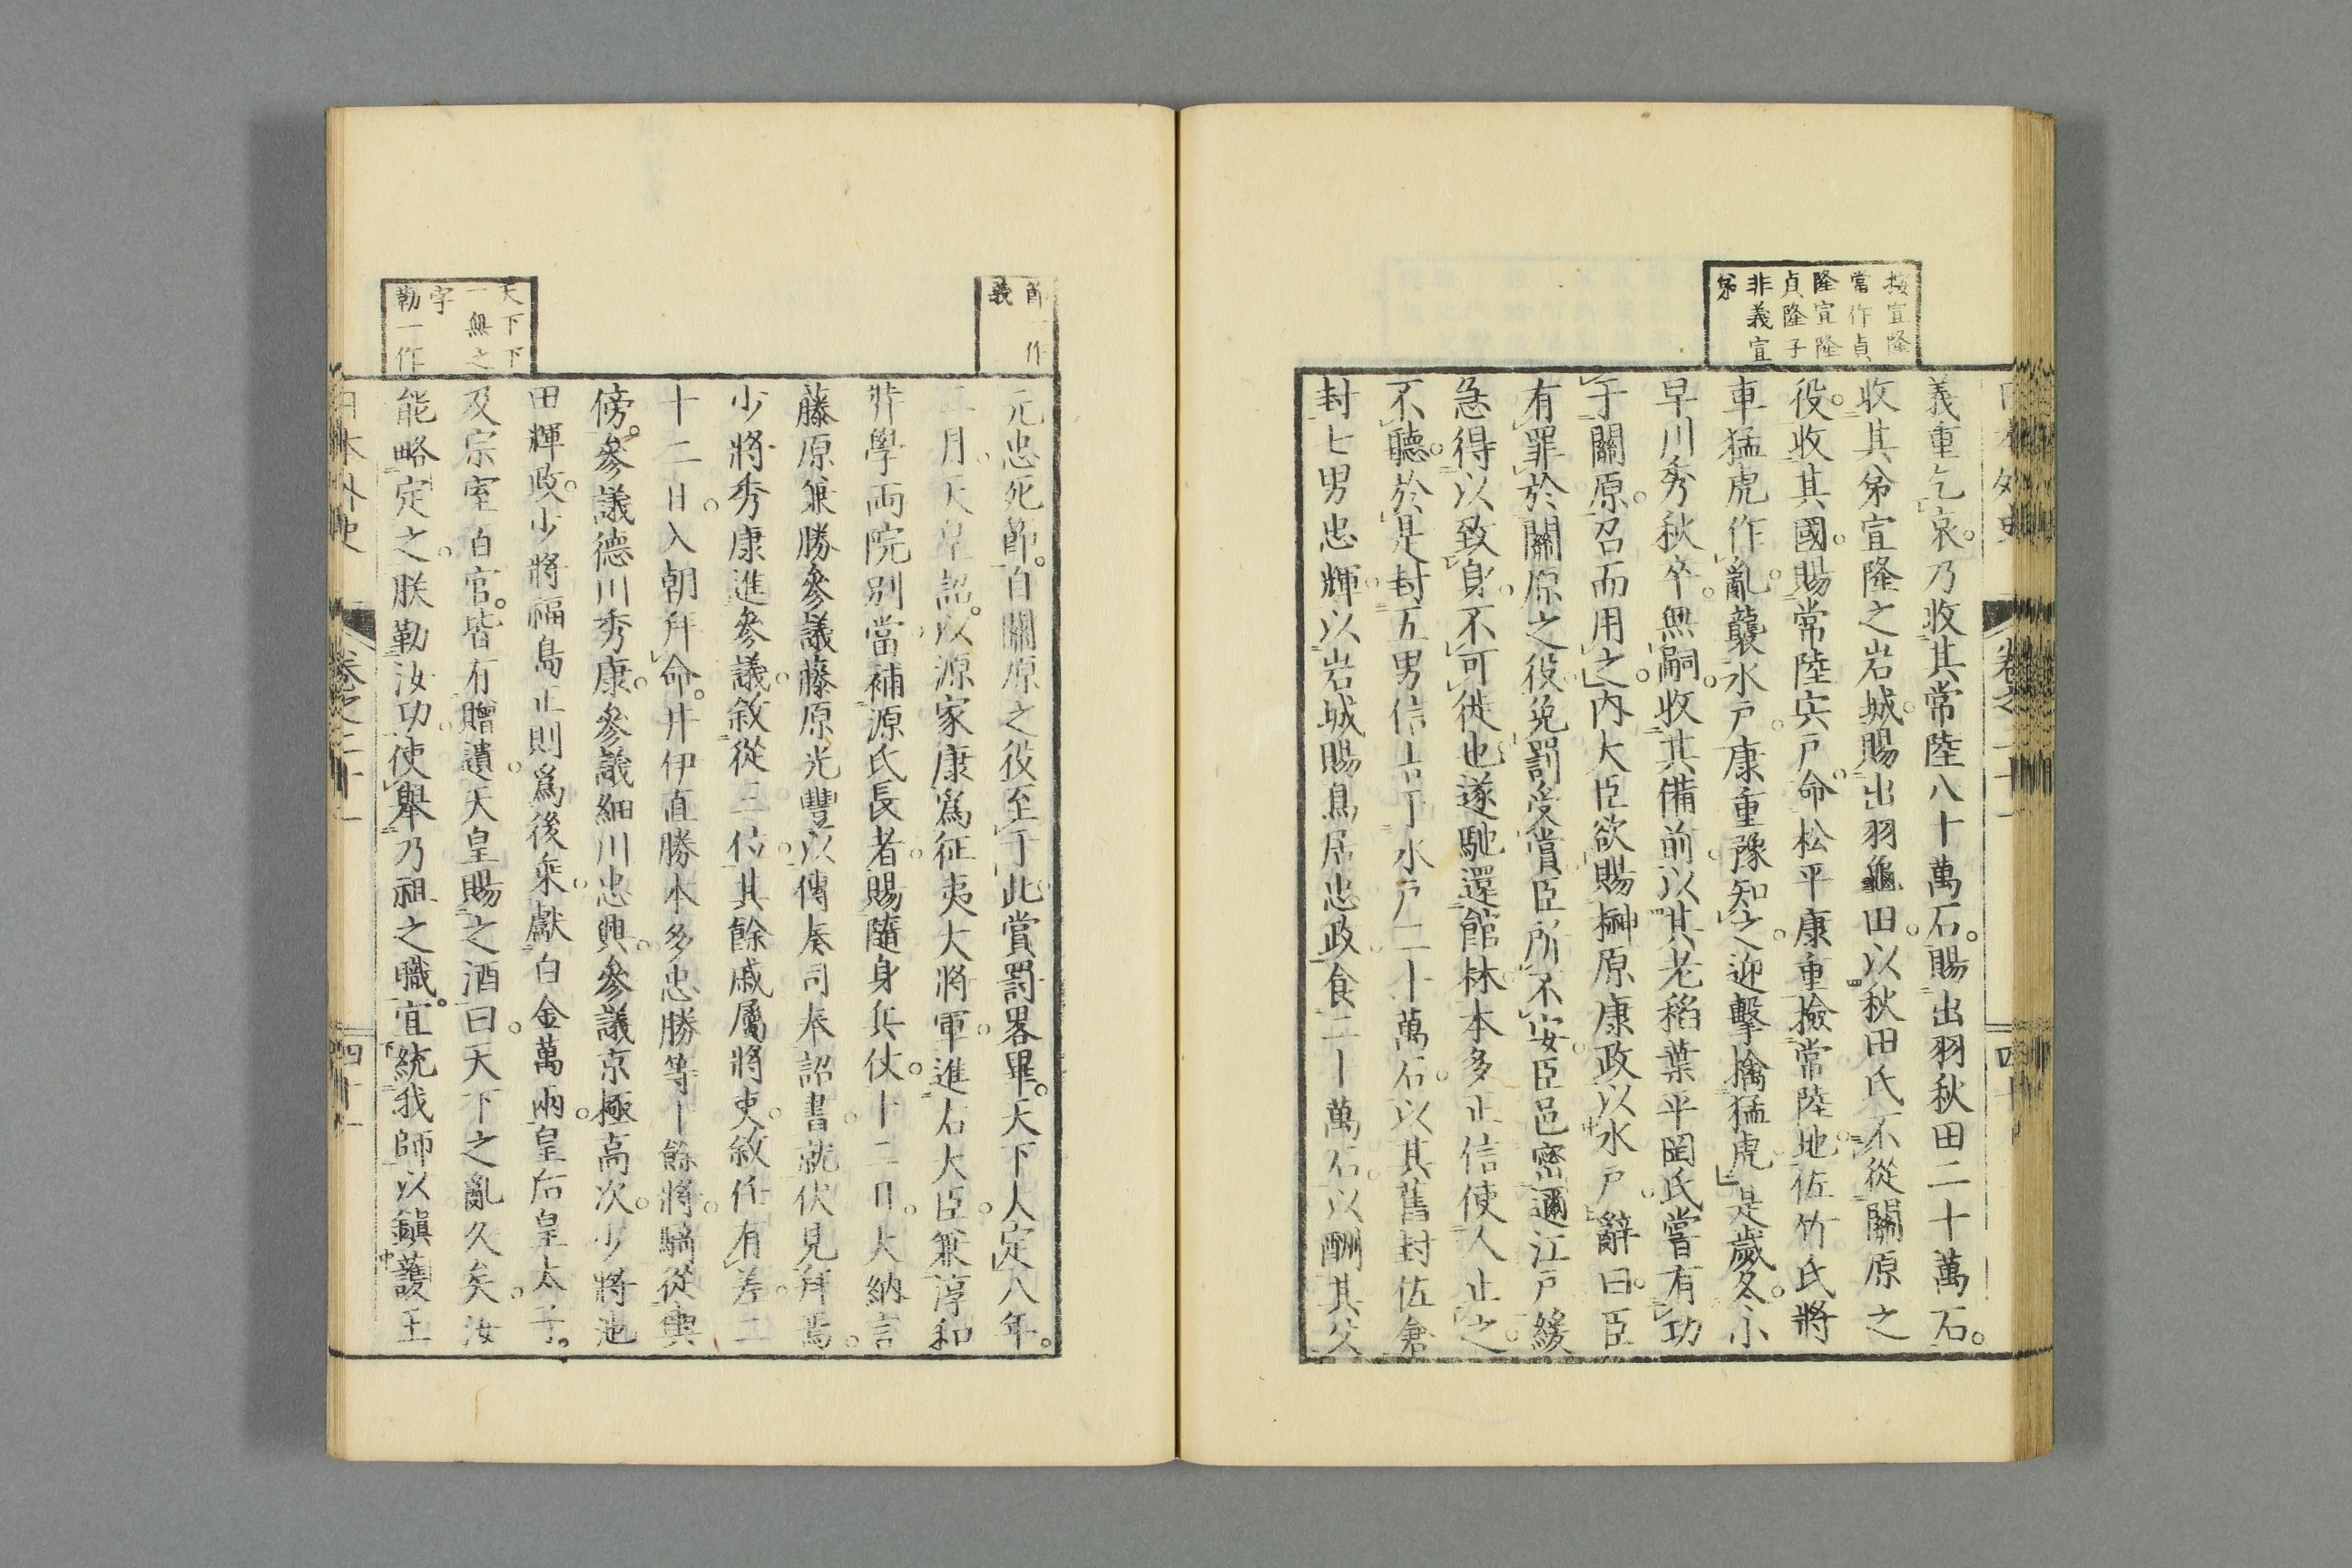 按宜隆
當作貞
隆宜隆
貞隆子
非義宜
弟
義重乞哀。乃收其常陸八十萬石。賜出羽秋田二十萬石。
收其弟宜隆之岩城。賜出羽龜田。以秋田氏不從關原之
役。收其國。賜常陸宍戶。命松平康重撿常陸地。佐竹氏將
車猛虎作亂。襲水戶。康重豫知之。迎擊擒猛虎。是歲冬。小
早川秀秋卒。無嗣。收其備前。以其老稻葉平岡氏嘗有功
于關原。召而用之。內大臣欲賜榊原康政以水戶。辭曰。臣
有罪於關原之役。免罰受賞。臣所不安。臣邑密邇江戶。緩
急得以致身。不可徙也。遂馳還館林。本多正信使人止之。
不聽。於是封五男信吉于水戶二十萬石。以其舊封佐倉
封七男忠輝。以岩城賜鳥居忠政。食二十萬石。以酬其父
日本外史
卷之二十一
四十
節一作
義
元忠死節。自關原之役至于此。賞罰畧畢。天下人定。八年。
二月。天皇詔。以源家康爲征夷大將軍。進右大臣。兼淳和
弉學兩院別當。補源氏長者。賜隨身兵仗。十二日。大納言
藤原兼勝參議藤原光豐。以傳奏司奉詔書。就伏見拜焉。
少將秀康進參議。敘從三位。其餘戚屬將吏。敘任有差。二
十二日。入朝拜命。井伊直勝本多忠勝等十餘將。騎從輿
傍。參議德川秀康。參議細川忠興。參議京極高次。少將池
田輝政。少將福島正則爲後乘。獻白金萬兩。皇后皇太子。
及宗室百官。皆有贈遺。天皇賜之酒曰。天下之亂久矣。汝
能略定之。朕勒汝功。使舉乃祖之職。宜統我師以鎮護王
天下下
一無之
字
勒一作
日本外史
卷之二十一
四十一